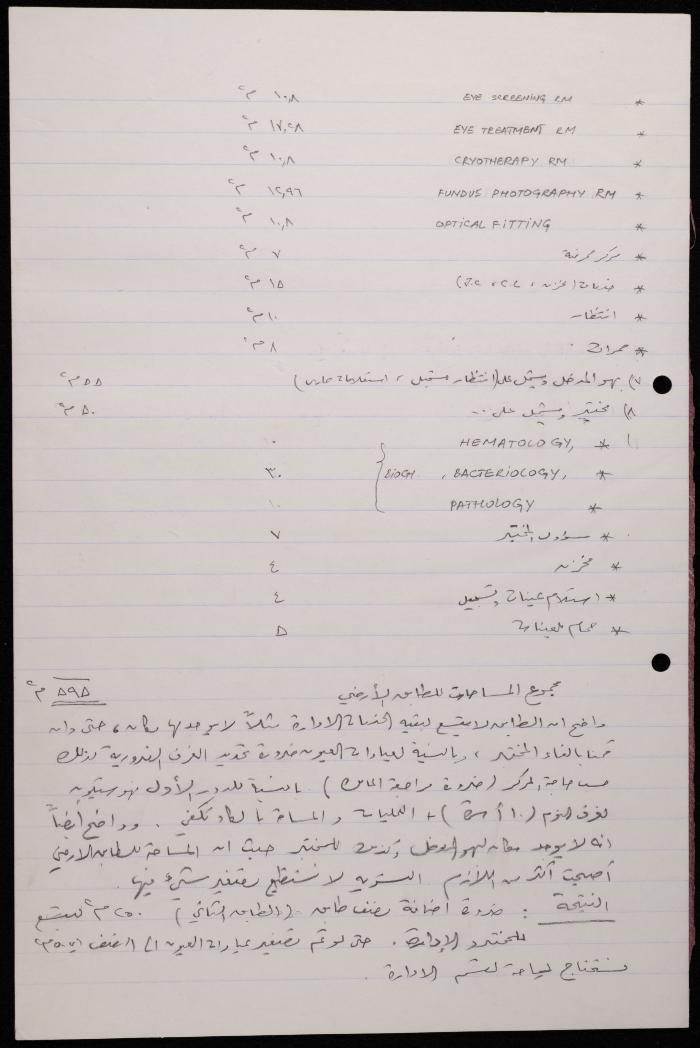 * EYE SCREENING RM ١٠,٨ م٢
* EYE TREATMENT RM ١٧,٢٨ م٢
* CRYOTHERAPY RM ١٠,٨ م٢
* FUNDUS PHOTOGRAPHY RM ١٢,٩٦ م٢
* OPTICAL FITTING ١٠,٨ م٢
* مركز ممرضة ٧ م٢
* خدمات (مخزن، C.L، J.C) ١٥ م٢
* انتظار ١٠ م٢
* ممرات ٨ م٢
٧) بهو المدخل ويشمل على (انتظار، مستقبل، استعلامات) ٥٥ م٢
٨) مختبر ويشمل على .. ٥٠ م٢
* HEMATOLOGY, ١٠
* BACTERIOLOGY, , BIOCH ٣٠
* PATHOLOGY ١٠
* مسؤول المختبر ٧
* مخزن ٤
* استلام عينات وتسجيل ٤
* حمام للعينات ٥
مجموع المساحات للطابق الأرضي ٥٩٥ م٢
واضح ان الطابق لا يتسع لبقية الخدمات الادارة مثلاً لا يوجد لها مكان، حتى وان
قمنا بالغاء المختبر، وبالنسبة لعيادات العيون ضرورة تحديد الغرف الضرورية لذلك
حسب حاجة المركز (ضرورة مراجعة) بالنسبة للدور الأول فهو سيكون
لغرف النوم (١٠ أسرة) + العمليات والمساحة بالكاد تكفي. وواضح أيضاً
انه لا يوجد مكان لبهو المدخل وكذلك للمختبر حيث ان المساحة للطابق الارضي
أصبحت أكثر من اللازم لا نستطيع تصغير شيء فيها.
النتيجة : ضرورة اضافة نصف طابق (الطابق الثاني) ٢٥٠ م٢ ليتسع
للمختبر والإدارة. حتى لو تم تصغير عيادات العيون الى النصف اي م٢
سنحتاج لمساحة لقسم الادارة.